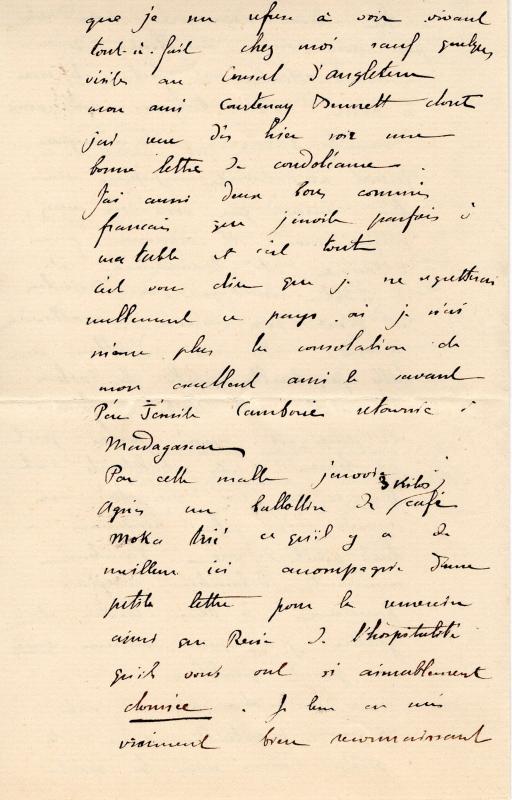 que je me refuse à voir vivant
tout-à-fait chez moi sauf quelques
visites au Consul d'angleterre
mon ami Courtenay Bennett dont
j'ai reçu dès hier soir une
bonne lettre de condoléance.
J'ai aussi deux bons commis
français que j'invite parfois à
ma table et c'est tout
c'est vous dire que je ne regretterai
nullement ce pays où je n'ai
même plus la consolation de
mon excellent ami le savant
Père Jésuite Camboué retourné à
Madagascar
Par cette malle j'envoie
3 Kilos
Agnès un ballottin de café
Moka trié ce qu'il y a de
meilleur ici accompagné d'une
petite lettre pour la remercier
ainsi que René de l'hospitalité
qu'ils vous ont si aimablement
donnée. Je leur en suis
vraiment bien reconnaissant